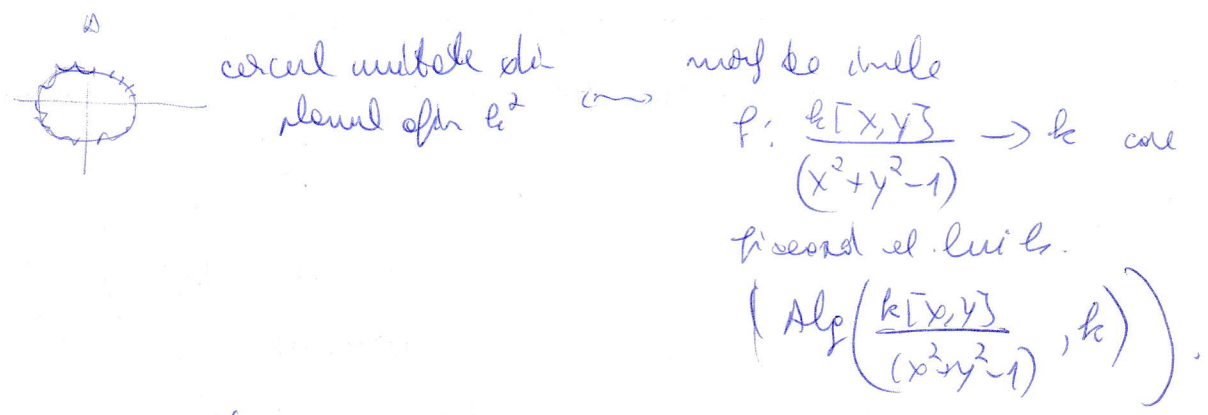 cercul unitate din
planul afin k² ⟷
morf de inele
f: k[X,Y] / (X²+Y²-1) → k care
fixează el. lui k.
(Alg(k[X,Y] / (X²+Y²-1), k)).